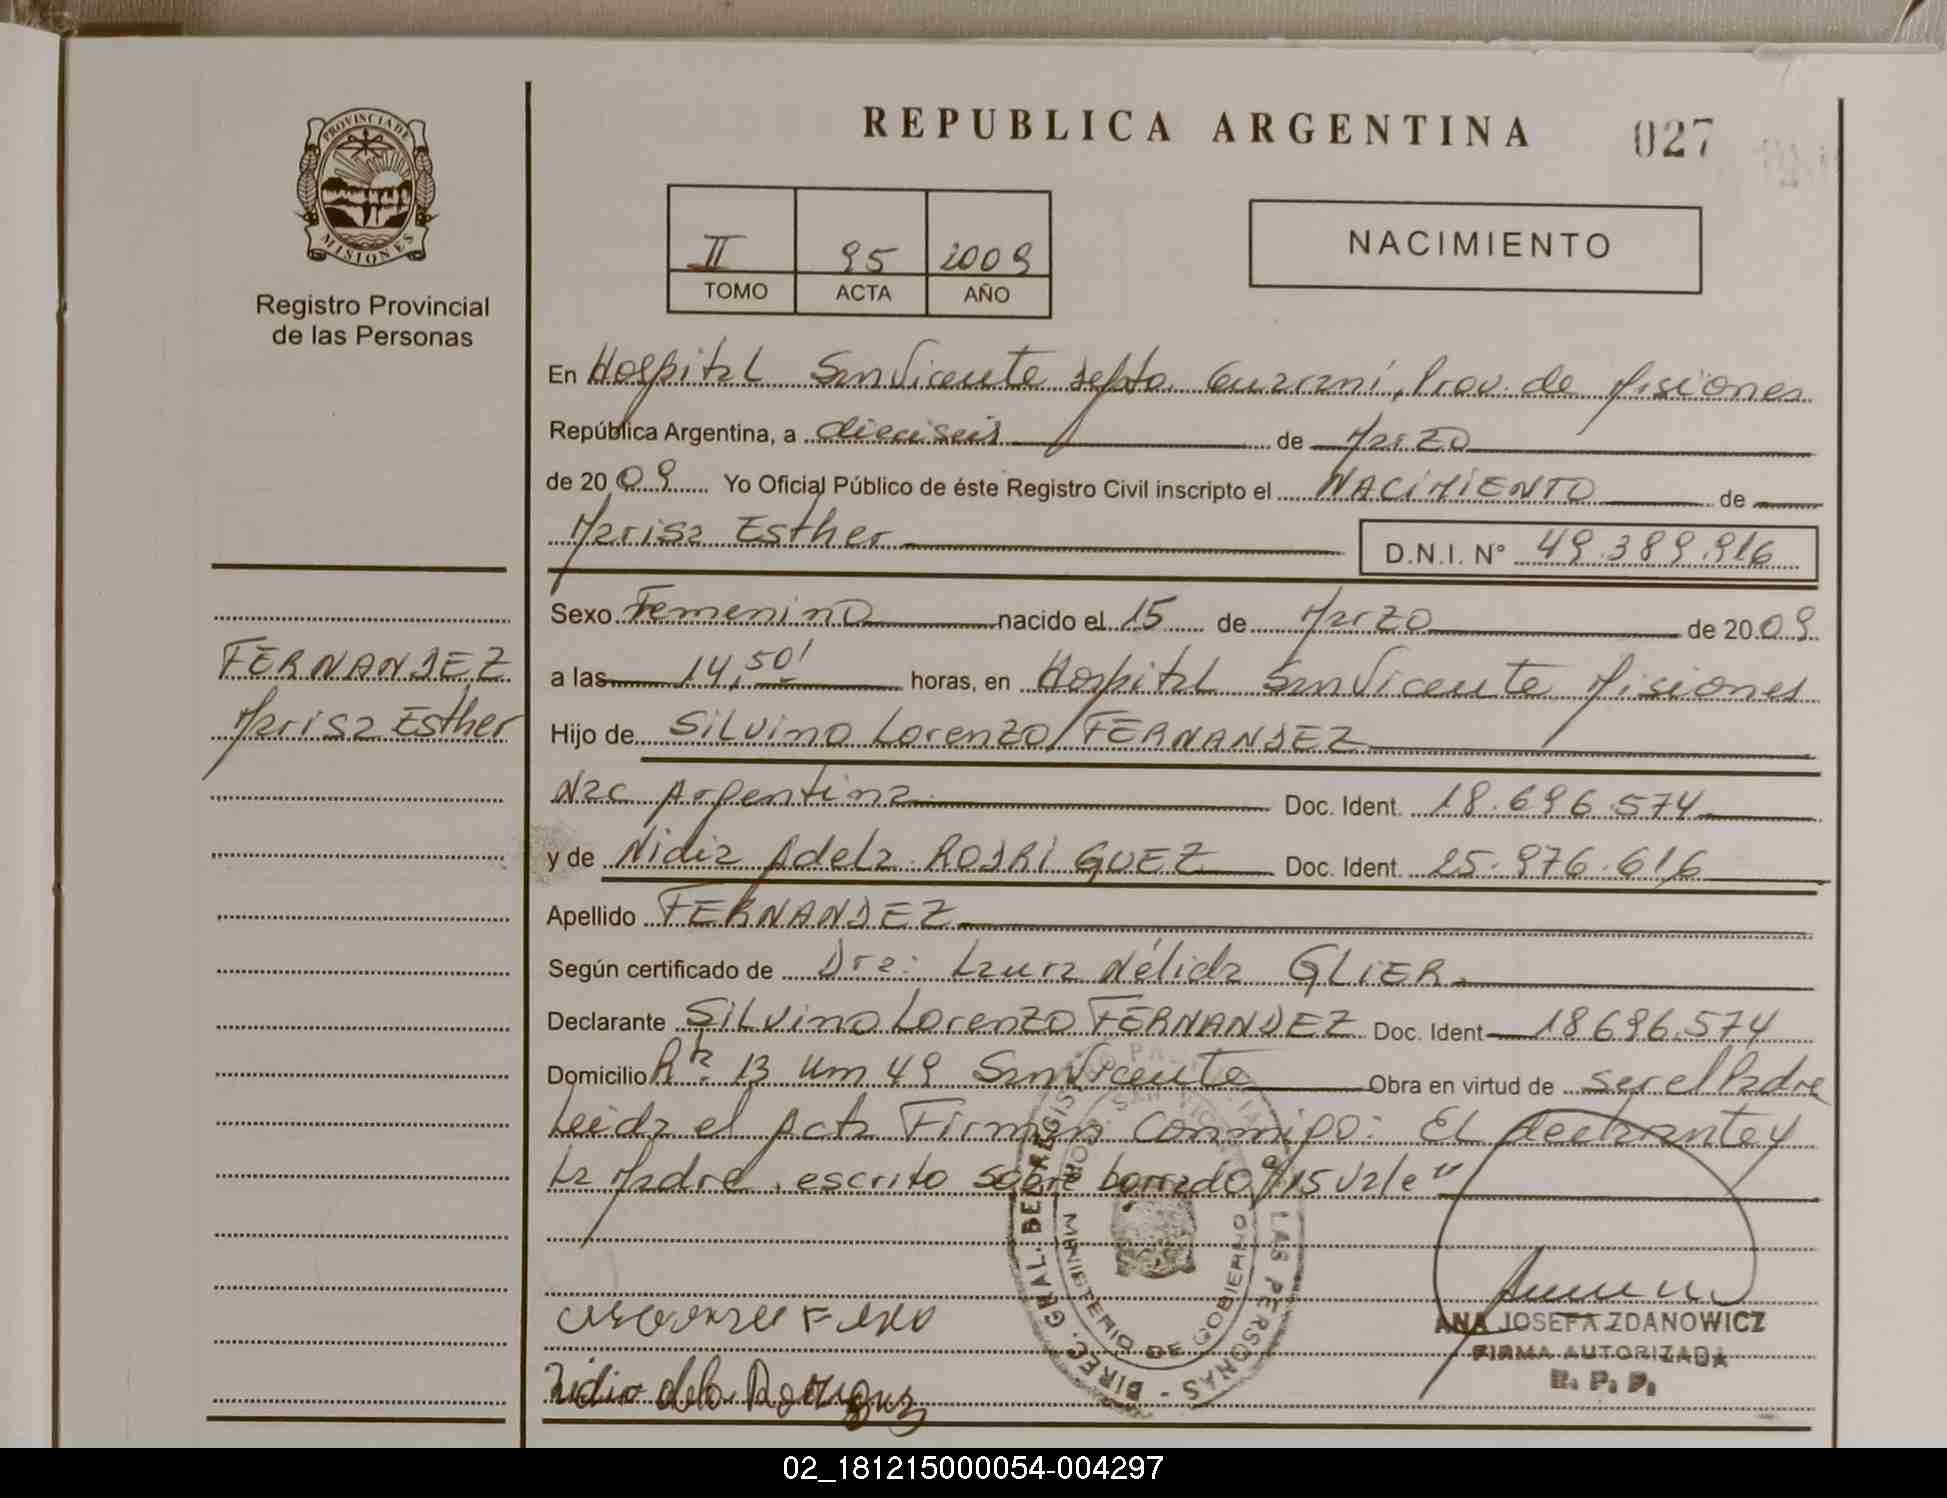 REPUBLICA ARGENTINA
027
PROVINCIA DE
MISIONES
Registro Provincial
de las Personas
II 95 2009
TOMO ACTA AÑO
NACIMIENTO
En Hospital San Vicente depto. Guaraní, Prov. de Misiones
República Argentina, a dieciseis de Marzo
de 2009 Yo Oficial Público de éste Registro Civil inscripto el NACIMIENTO de
Marisa Esther D.N.I. N° 49.389.916
Sexo Femenino nacido el 15 de Marzo de 2009
a las 14,50' horas, en Hospital San Vicente Misiones
Hijo de Silvino Lorenzo FERNANDEZ
Nac Argentina Doc. Ident. 18.696.574
y de Nidia Adela RODRIGUEZ Doc. Ident. 25.976.616
Apellido FERNANDEZ
Según certificado de Dra: Laura Nélida GLIER
Declarante Silvino Lorenzo FERNANDEZ Doc. Ident 18.696.574
Domicilio Rta 13 Km 49 San Vicente Obra en virtud de ser el Padre
Leida el Acta Firman Conmigo: El declarante y
la Madre, escrito sobre borrado "15 Vale"
FERNANDEZ
Marisa Esther
DIREC. GRAL. DEL REGISTRO PROVINCIAL DE LAS PERSONAS
MINISTERIO DE GOBIERNO
SAN VICENTE
ANA JOSEFA ZDANOWICZ
FIRMA AUTORIZADA
R. P. P.
02_181215000054-004297